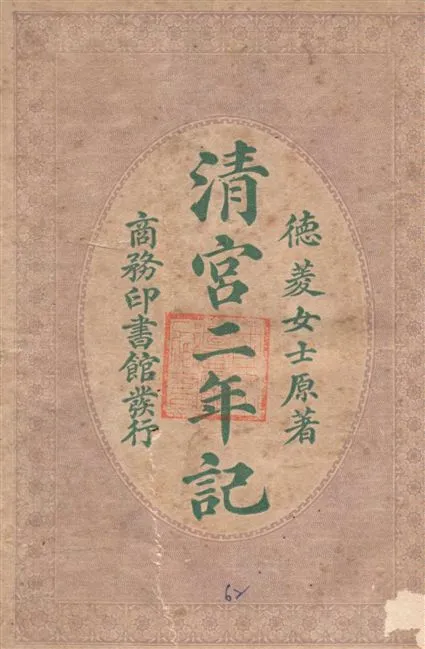 德菱女士原著
清宮二年記
商務印書館發行
62